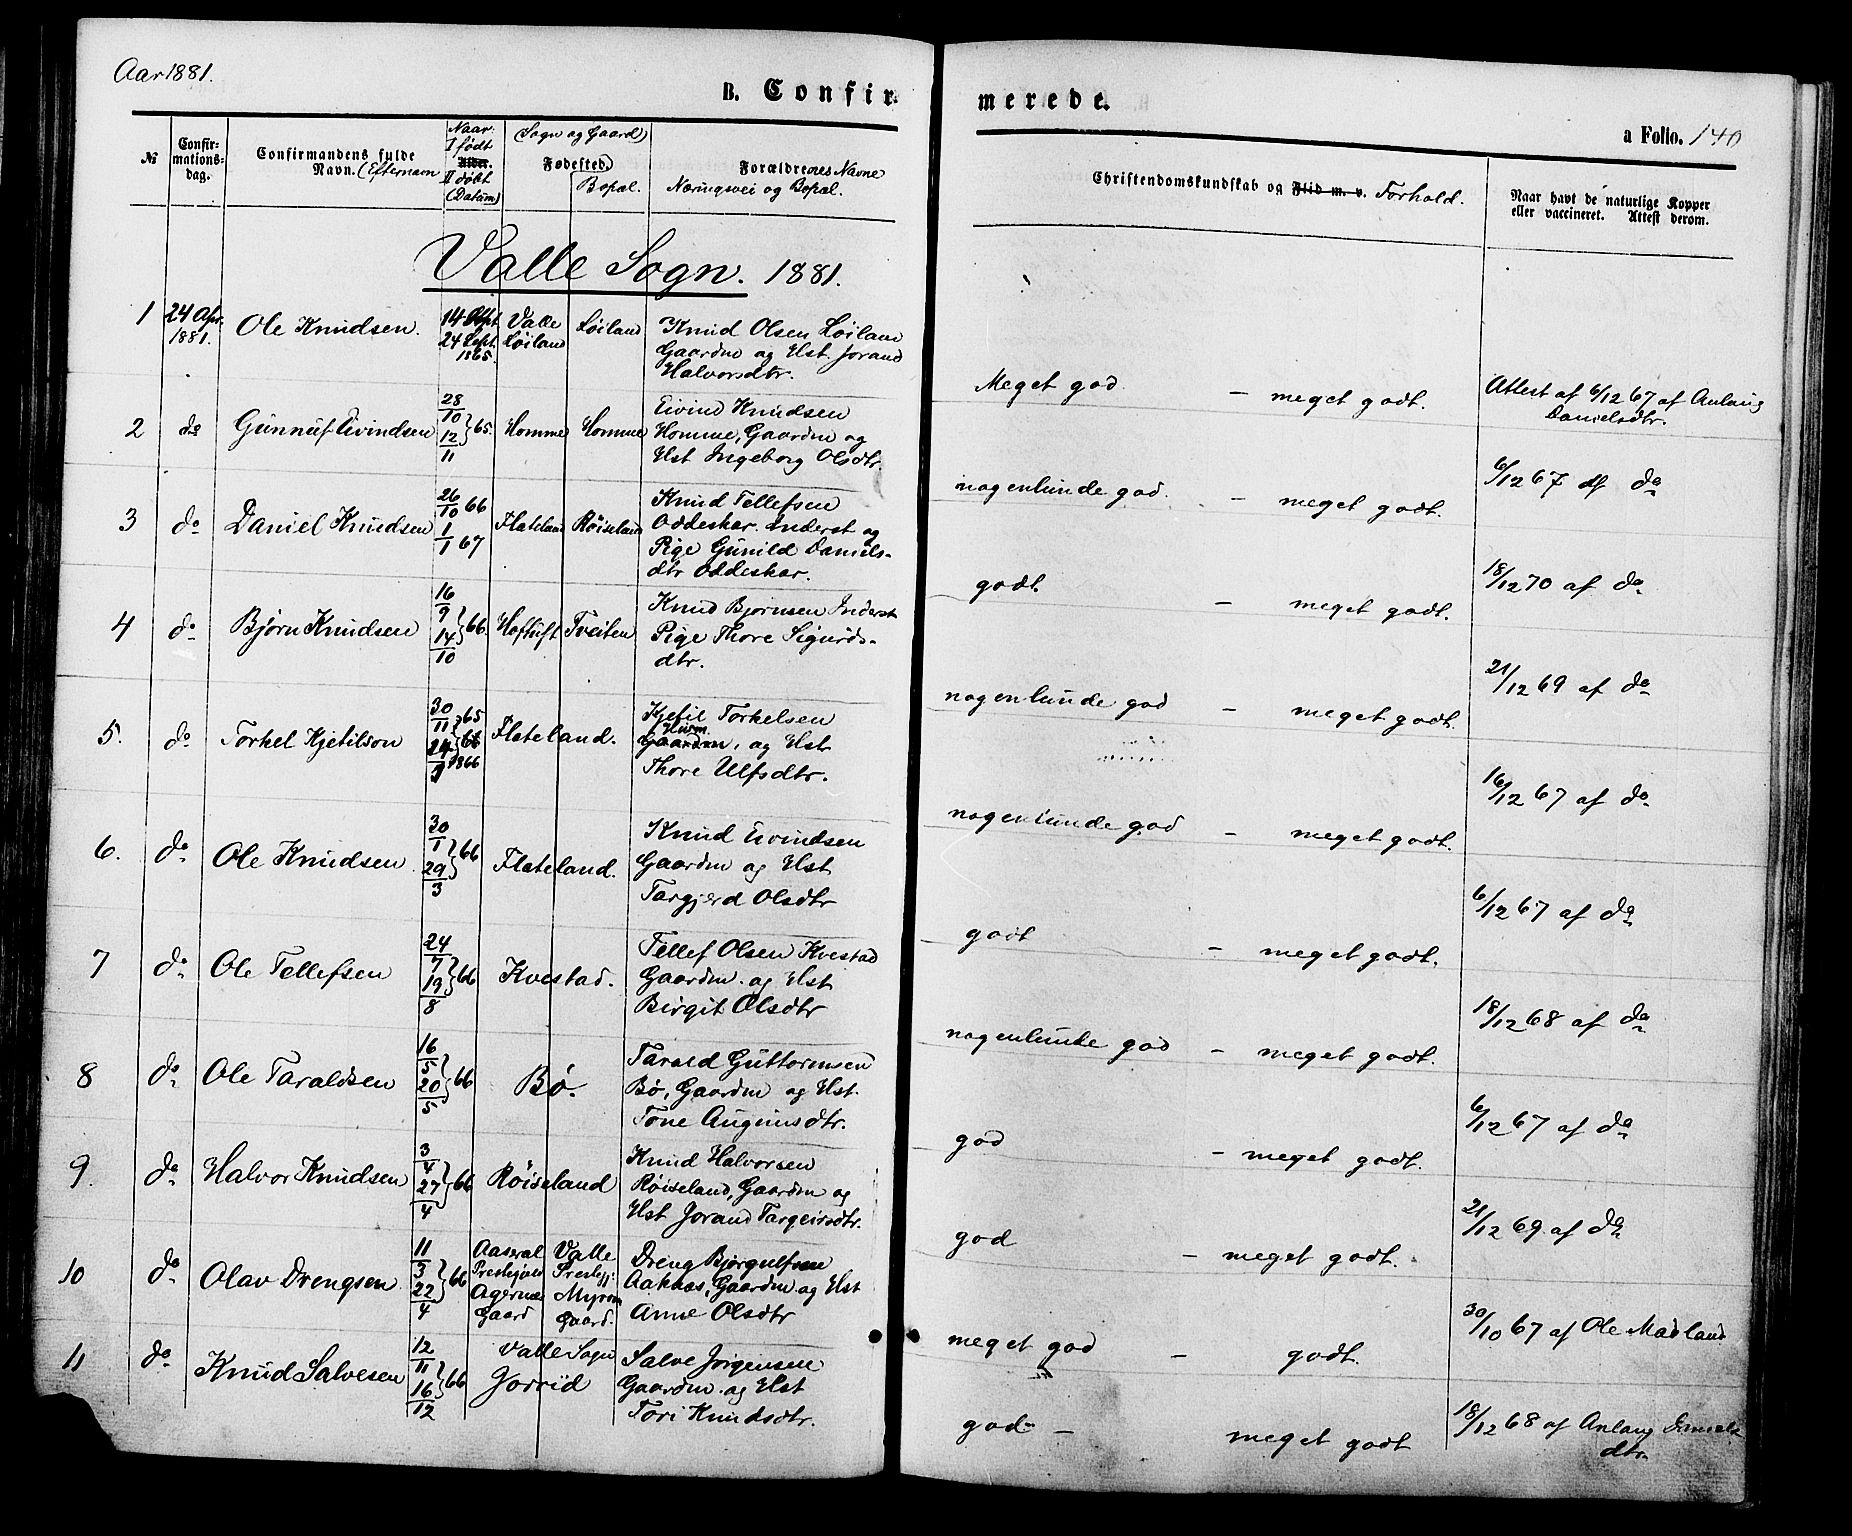 Aar 1881.
B. Confirmerede.
a Folio. 140
№
Confirmations-dag.
Confirmandens fulde Navn. (Efternavn
Naar I født Alder. II døbt (Datum)
(Sogn og Gaard)
Fødested.)
Bopæl.
Forældrenes Navne
Næringsvei og Bopæl.
Christendomskundskab og Flid m. v. Forhold.
Naar havt de naturlige Kopper
eller vaccineret. Attest derom.
Valle Sogn. 1881.
1 24 Apr. 1881. Ole Knudsen. 14 Sept 24 Sept. 1865. Valle Løiland Løiland
Knud Olsen Løiland
Gaardm og Hst. Jorand
Halvorsdtr.
Meget god — meget godt. Attest af 6/12 67 af Anlaug
Danielsdtr.
2 do Gunnuf Eivindsen 28/10 12/11 } 65. Homme Homme
Eivind Knudsen
Homme, Gaardm og
Hst Ingeborg Olsdtr.
nogenlunde god. — meget godt. 6/12 67 af do
3 do Daniel Knudsen 26/10 66 1/1 67 Flateland Røiseland
Knud Tellefsen
Oddeskar. Inderst og
Pige Gunild Daniels-
dtr Oddeskar.
godt. — meget godt. 18/12 70 af do
4 do Bjørn Knudsen 16/9 14/10 } 66. Hoftuft Tveiten
Knud Bjørnsen Inderst
Pige Thore Sigurds-
dtr.
nogenlunde god — meget godt. 21/12 69 af do
5. do Torkel Kjetilson 30/11 } 65 24/1 } 66 1866 Flateland.
Kjetil Torkelsen
Husm.
Gaardm, og Hst
Thore Ulfsdtr.
nogenlunde god — meget godt. 16/12 67 af do
6. do Ole Knudsen 30/1 29/3 } 66 Flateland.
Knud Eivindsen
Gaardm og Hst
Targjerd Olsdtr
godt — meget godt. 6/12 67 af do
7 do Ole Tellefsen 24/7 19/8 } 66 Kvestad.
Tellef Olsen Kvestad
Gaardm. og Hst
Birgit Olsdtr
nogenlunde god — meget godt. 18/12 68 af do
8 do Ole Taraldsen 16/5 20/5 } 66 Bø.
Tarald Guttormsen
Bø, Gaardm og Hst.
Tone Augunsdtr.
god — meget godt. 6/12 67 af do
9. do Halvor Knudsen 3/4 27/4 } 66 Røiseland
Knud Halvorsen
Røiseland, Gaardm og
Hst Jorand Targeirsdtr.
god — meget godt. 21/12 69 af do
10 do Olav Drengsen 11/3 22/4 } 66 Aaseral Prestegjeld Agernæs Gaard Valle Prestegj: Myrum Gaard.
Dreng Bjørgulfsen
Aaknæs, Gaardm og Hst
Anne Olsdtr
meget god — godt. 30/10 67 af Ole Madland
11 do Knud Salvesen 12/11 16/12 } 66 Valle Sogn Jorrid
Salve Jørgensen
Gaardm. og Hst
Tori Knudsdtr.
god — meget godt 18/12 68 af Anlaug Daniels
dtr.